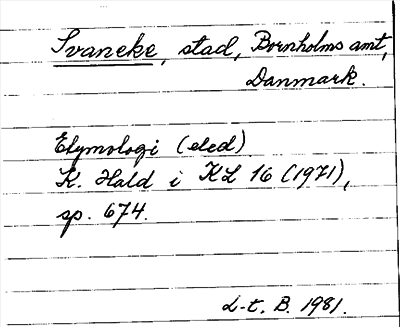 Svaneke, stad, Bornholms amt,
Danmark.
Etymologi (eled)
K. Hald i KL 16 (1971),
sp. 674.
L-t. B. 1981.